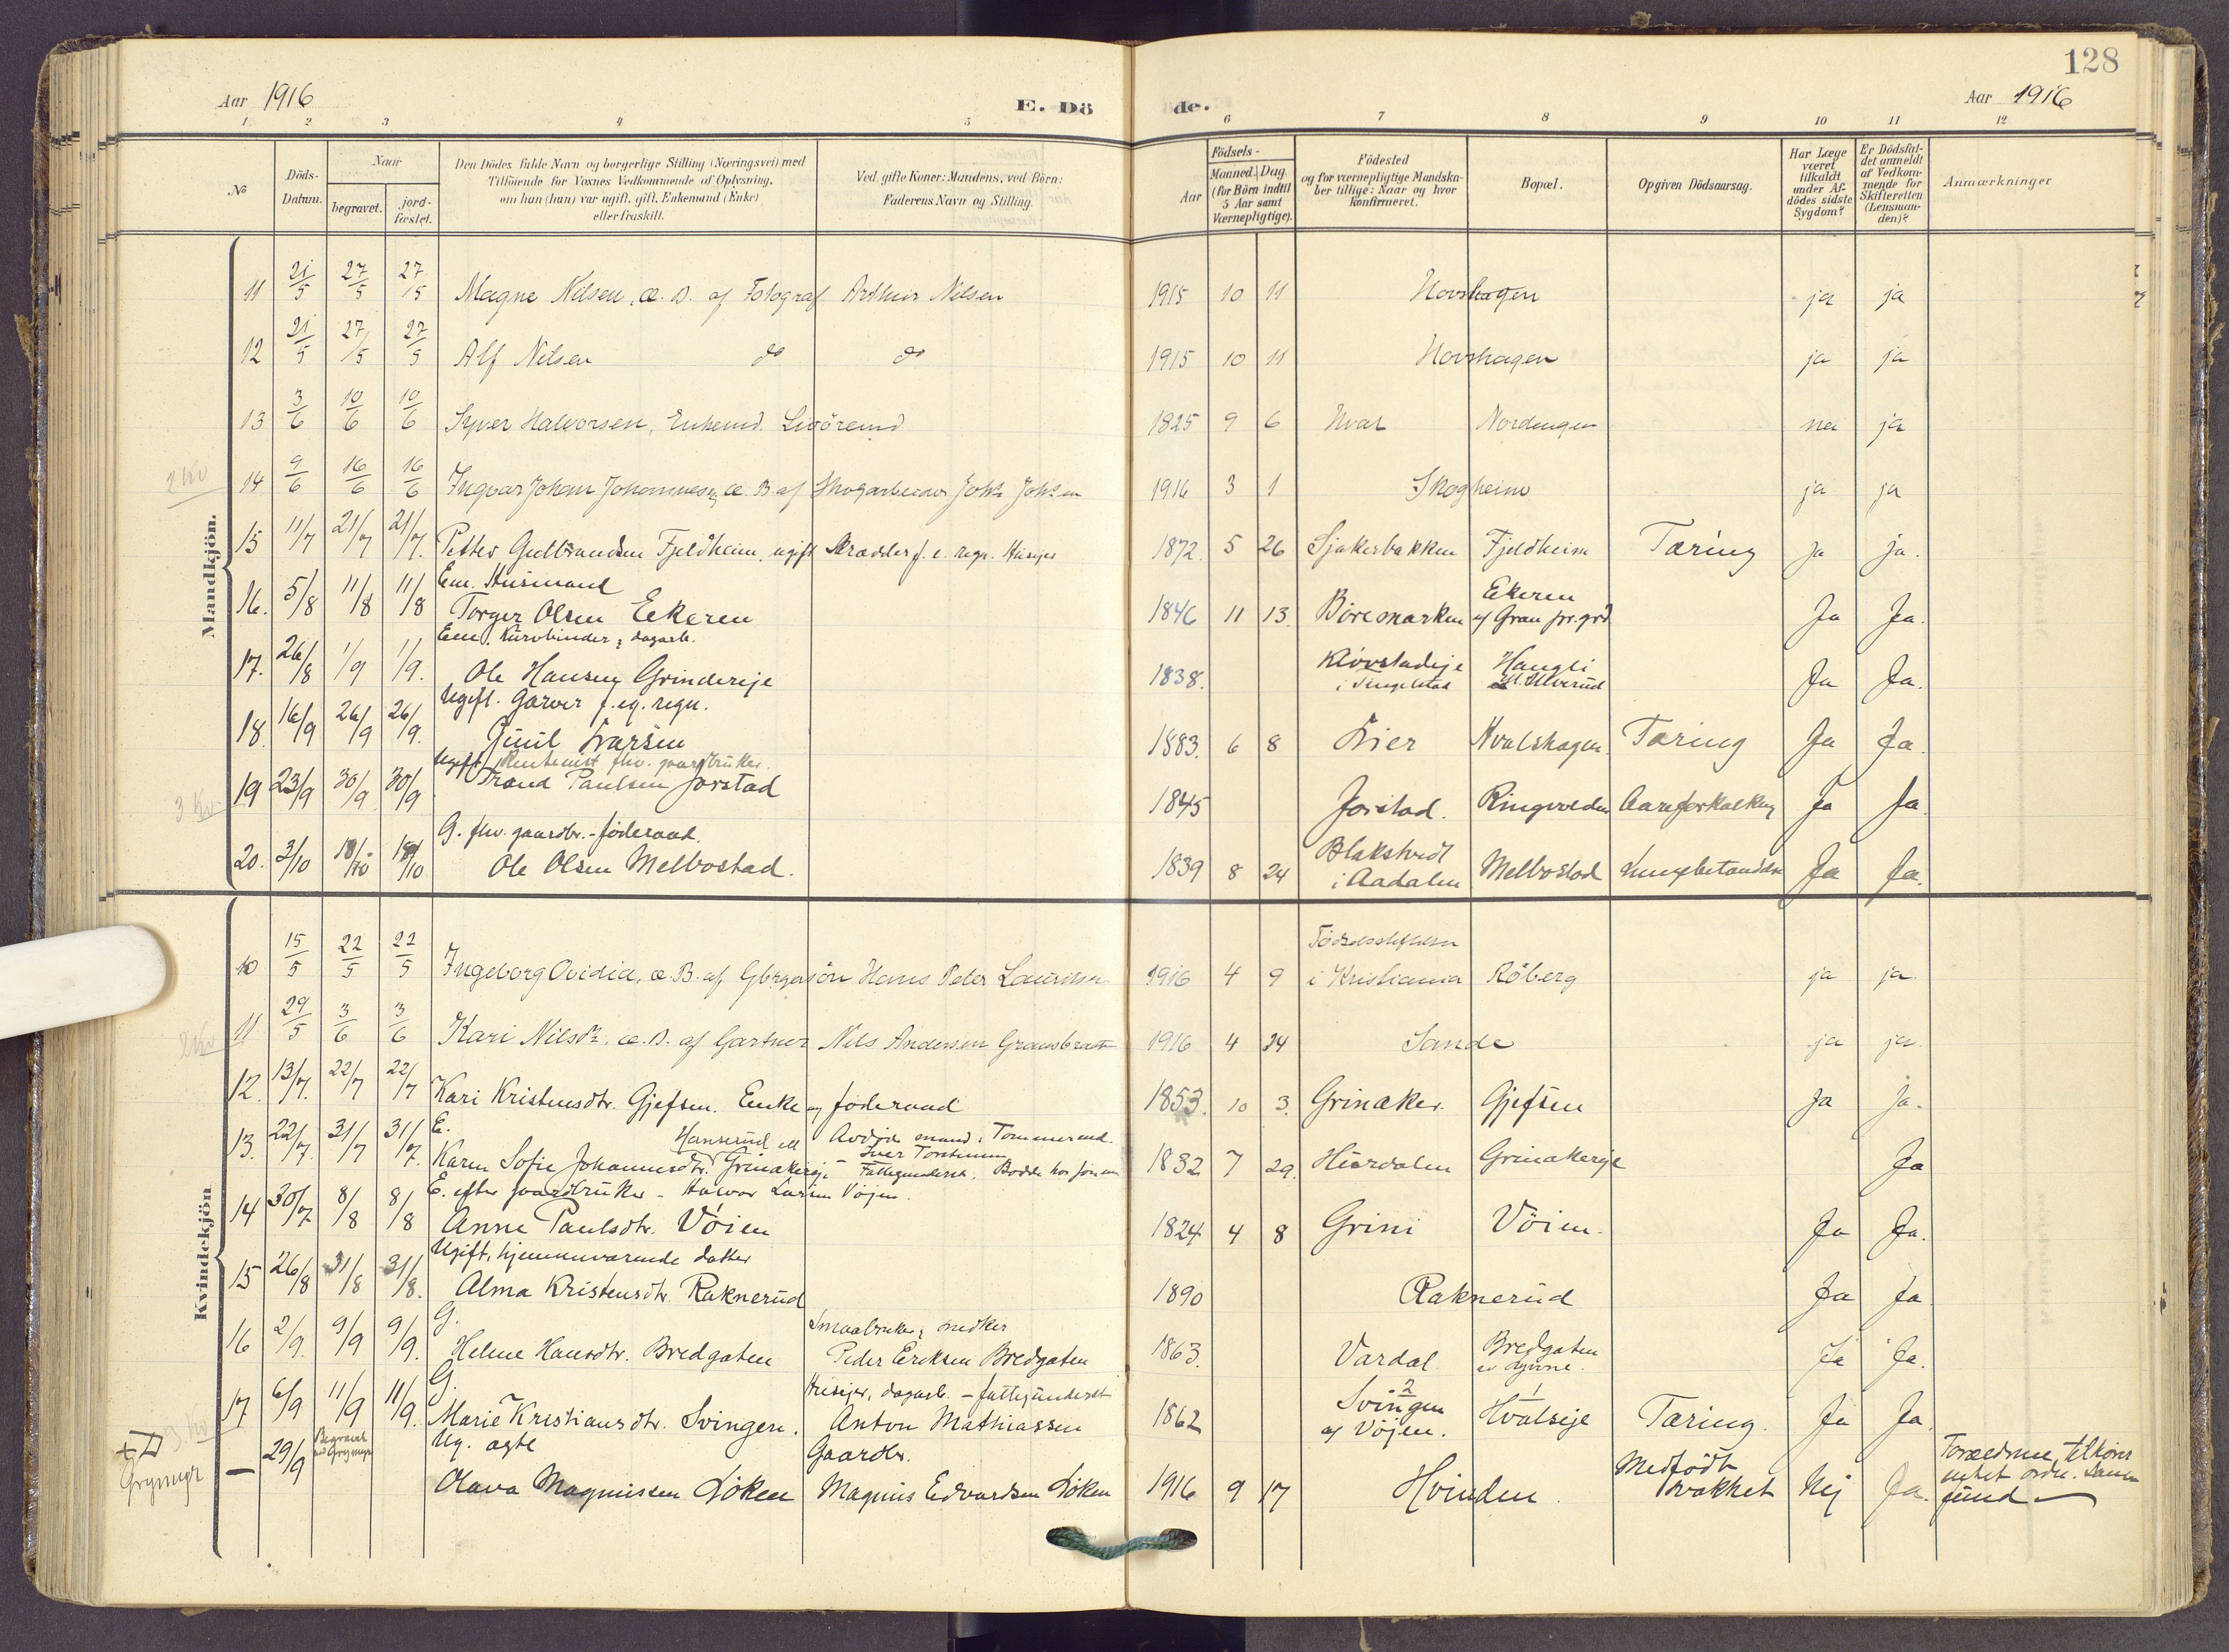 128
Aar 1916
E. Dö de.
Aar 1916
1 2 3 4 5 6 7 8 9 10 11 12
№
Döds-Datum.
Naar
begravet.
jord-fæstet.
Den Dödes fulde Navn og borgerlige Stilling (Næringsvei) med
Tilföiende for Voxnes Vedkommende af Oplysning,
om han (hun) var ugift, gift, Enkemand (Enke)
eller fraskilt.
Ved gifte Koner: Mandens, ved Börn:
Faderens Navn og Stilling.
Födsels-
Aar
Maaned. Dag.
(for Börn indtil
5 Aar samt
Værnepligtige).
Födested
og for værnepligtige Mandska-
ber tillige: Naar og hvor
Konfirmeret.
Bopæl.
Opgiven Dödsaarsag.
Har Læge
været
tilkaldt
under Af-
dödes sidste
Sygdom?
Er Dödsfal-
det anmeldt
af Vedkom-
mende for
Skifteretten
(Lensman-
den)?
Anmærkninger
Mandkjön.
11 21/5 27/5 27/5 Magne Nilsen, æ. B. af Fotograf Arthur Nilsen 1915 10 11 Hovshagen ja ja
12 21/5 27/5 27/5 Alf Nilsen do do 1915 10 11 Hovshagen ja ja
13 3/6 10/6 10/6 Syver Halvorsen, Enkemd. Livöremd 1825 9 6 Hval Nordengen nei ja
2 Kv
14 9/6 16/6 16/6 Ingvar Johan Johannesen, æ. B. af Skogarbeider Johs Johsen 1916 3 1 Skogheim ja ja
15 11/7 21/7 21/7. Petter Gulbrandsen Fjeldheim, ugift Skrædder f. e. regn. Husejer 1872 5 26 Sjokerbakken Fjeldheim Tæring ja ja.
Em. Husmand
16. 5/8 11/8 11/8 Torger Olsen Eekeren 1846 11 13. Böremarken Ekeren af Gran pr.grd Ja Ja.
Em. Kurvbinder, dagarb.
17. 26/8 1/9 1/9. Ole Hansen Grindereje 1838. Klövstadeje i Tingelstad Haugli Ja Ja.
Ugift. Garver f. eg. regn.
18. 16/9 26/9 26/9. Juul Larsen 1883. 6 8 Lier Hvalshagen Tæring Ja Ja.
Ugift Rentenist fhv. gaardbruker.
3 Kv
19 23/9 30/9 30/9 Trond Paulsen Jorstad 1845 Jorstad. Ringvolden Aareforkalkng Ja Ja.
G. fhv. gaardbr. - föderaad.
20. 3/10 18/10 18/10 Ole Olsen Melbostad. 1839 8 24 i Aadalen Melbostad Lungebetændelse Ja Ja.
Kvindekjön
10 15/5 22/5 22/5 Ingeborg Ovidia, æ. B. af Gbrgersön Hans Peter Lauritsen 1916 4 9 Födselsstiftelsen i Kristiania Röberg ja ja
2 Kv
11 29/5 3/6 3/6 Kari Nilsdr. æ. B. af Gartner Nils Andersen Gransbraaten 1916 4 24 Sande ja ja
12. 13/7. 22/7 22/7 Kari Kristensdtr. Gjefsen. Enke og föderaad 1853. 10 3. Grinaker. Gjefsen ja ja.
E. Hanserud
13. 22/7. 31/7 31/7. Karen Sofie Johannesdtr. Grinakereje - Avdöde mand: Tommermd. Iver Torstensen Fattigunderst. Bodde hos sönnen 1832 7 29. Hurdalen Grinakereje Ja
E. efter gaardbruker - Halvor Larsen Vöjen.
14 30/7 8/8 8/8 Anne Paulsdtr. Vöien 1824 4 8 Grini Vöien. Ja Ja.
Ugift, hjemmeværende datter
15 26/8 31/8 31/8. Alma Kristensdtr. Raknerud 1890 Raknerud Ja Ja.
G. Smaabruker, snedker
16 2/9. 9/9 9/9. Helene Hansdtr. Bredgaten Peder Eriksen Bredgaten 1863. Vardal Bredgaten Ja Ja.
G. Huseier, dagarb. - fattigunderst
3. Kv
17 6/9 11/9 11/9. Marie Kristiansdtr. Svingen. Anton Mathiassen 1862 Svingen 2 af Vöjen. Hvalseje 1 Tæring. Ja Ja.
Grymyr
— 29/9 Begravet ved Grymyr Ug. ægte Gaardbr.
Olava Magnussen Löken Magnus Edvardsen Löken 1916 9 17 Hvinden. Medfödt svakhet Nej Ja.